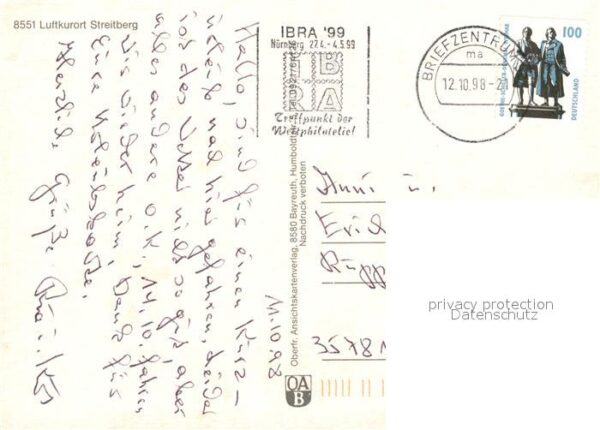 8551 Luftkurort Streitberg
Hallo, sind für einen Kurz-
urlaub nach hier gefahren, leider
ist das Wetter nicht so gut, aber
alles andere o.k., 14.10. fahren
wir wieder heim. Danke für
Eure Urlaubskarte.
Herzliche Grüße
11.10.98
Oberfr. Ansichtskartenverlag, 8580 Bayreuth, Humboldtstr.
Nachdruck verboten
IBRA '99
Nürnberg 27.4.-4.5.99
IB
RA
Treffpunkt der
Weltphilatelie!
BRIEFZENTRUM
ma
12.10.98-2
100
DEUTSCHLAND
Anni u.
Erich
3578
OA
B
privacy protection
Datenschutz